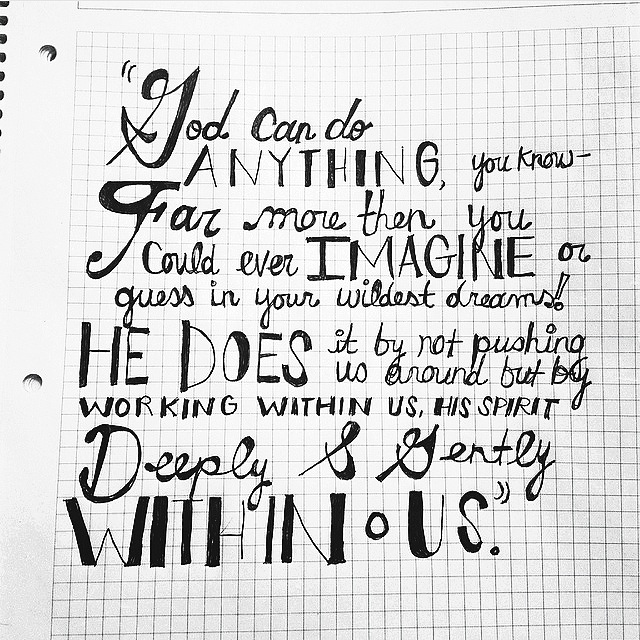 "God can do
ANYTHING, you know—
Far more then you
Could ever IMAGINE or
guess in your wildest dreams!
HE DOES it by not pushing
us around but by
WORKING WITHIN US, HIS SPIRIT
Deeply & Gently
WITHIN US."